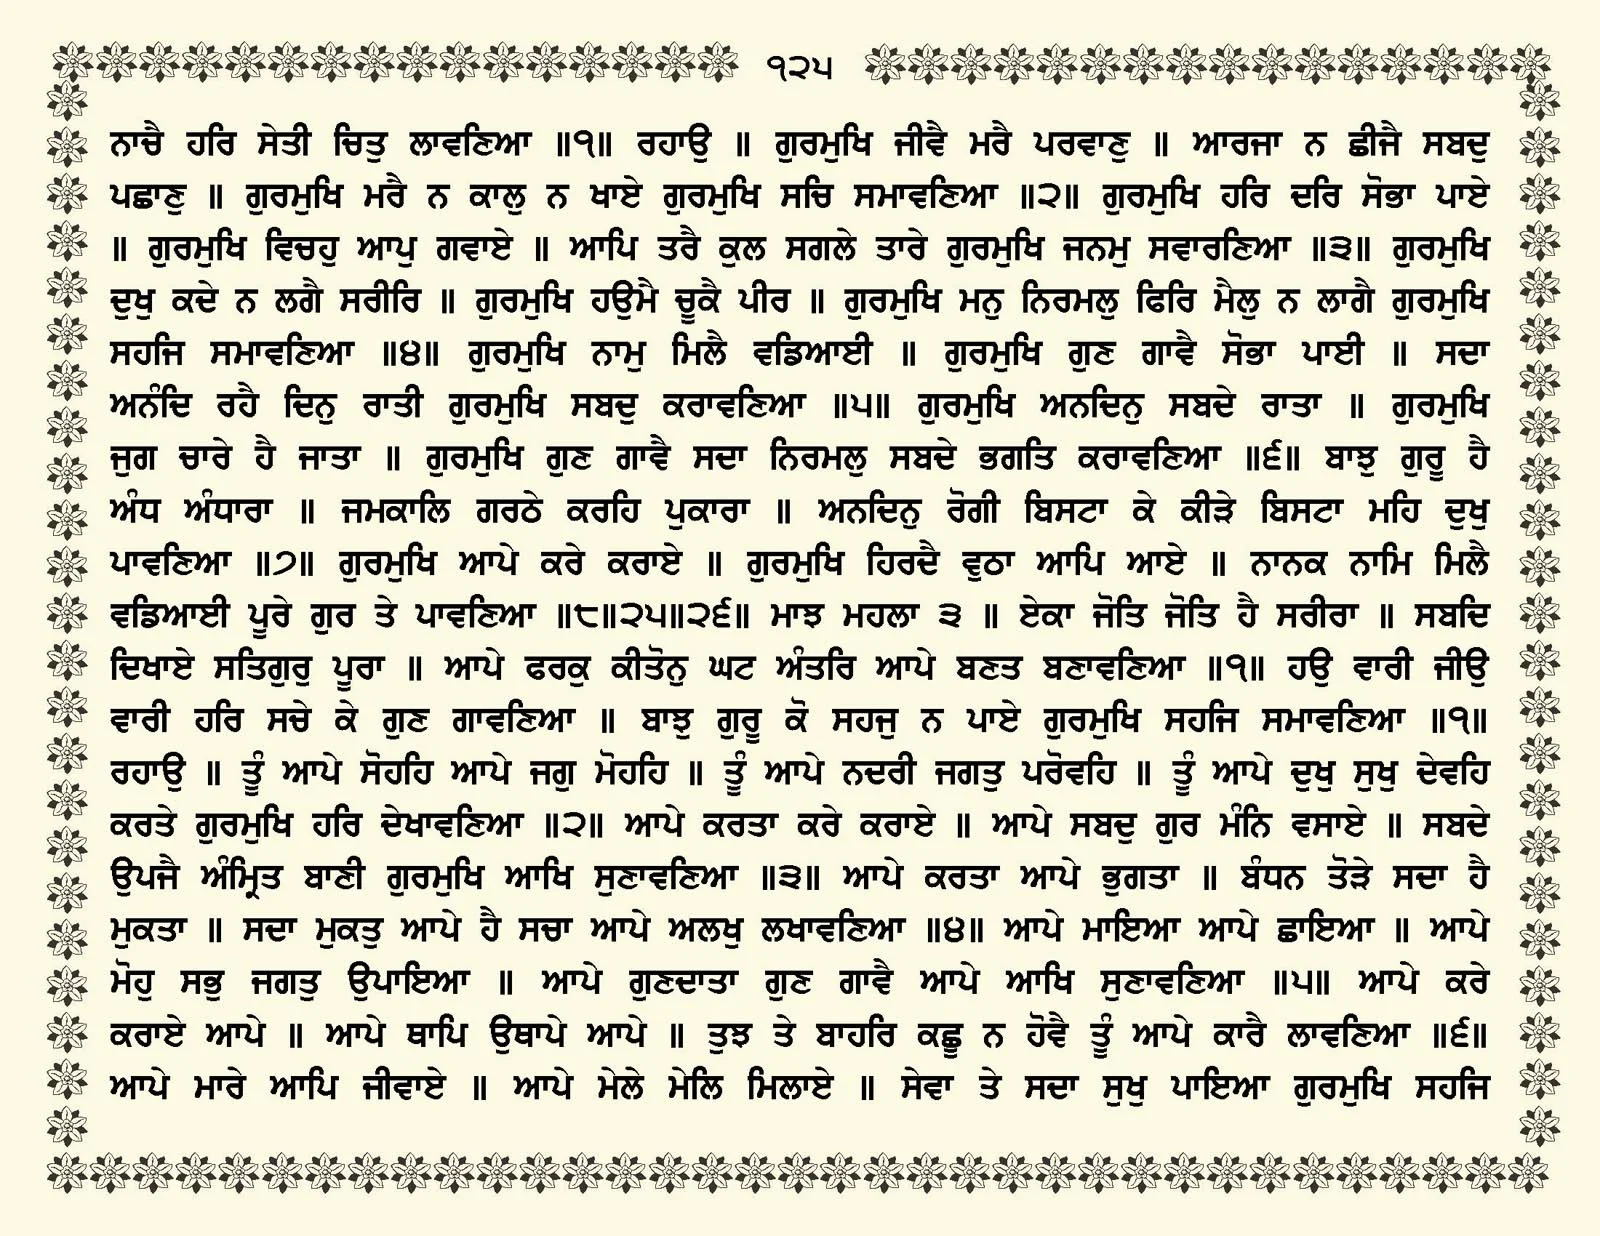 ੧੨੫
ਨਾਚੈ ਹਰਿ ਸੇਤੀ ਚਿਤੁ ਲਾਵਣਿਆ ॥੧॥ ਰਹਾਉ ॥ ਗੁਰਮੁਖਿ ਜੀਵੈ ਮਰੈ ਪਰਵਾਣੁ ॥ ਆਰਜਾ ਨ ਛੀਜੈ ਸਬਦੁ
ਪਛਾਣੁ ॥ ਗੁਰਮੁਖਿ ਮਰੈ ਨ ਕਾਲੁ ਨ ਖਾਏ ਗੁਰਮੁਖਿ ਸਚਿ ਸਮਾਵਣਿਆ ॥੨॥ ਗੁਰਮੁਖਿ ਹਰਿ ਦਰਿ ਸੋਭਾ ਪਾਏ
॥ ਗੁਰਮੁਖਿ ਵਿਚਹੁ ਆਪੁ ਗਵਾਏ ॥ ਆਪਿ ਤਰੈ ਕੁਲ ਸਗਲੇ ਤਾਰੇ ਗੁਰਮੁਖਿ ਜਨਮੁ ਸਵਾਰਣਿਆ ॥੩॥ ਗੁਰਮੁਖਿ
ਦੁਖੁ ਕਦੇ ਨ ਲਗੈ ਸਰੀਰਿ ॥ ਗੁਰਮੁਖਿ ਹਉਮੈ ਚੂਕੈ ਪੀਰ ॥ ਗੁਰਮੁਖਿ ਮਨੁ ਨਿਰਮਲੁ ਫਿਰਿ ਮੈਲੁ ਨ ਲਾਗੈ ਗੁਰਮੁਖਿ
ਸਹਜਿ ਸਮਾਵਣਿਆ ॥੪॥ ਗੁਰਮੁਖਿ ਨਾਮੁ ਮਿਲੈ ਵਡਿਆਈ ॥ ਗੁਰਮੁਖਿ ਗੁਣ ਗਾਵੈ ਸੋਭਾ ਪਾਈ ॥ ਸਦਾ
ਅਨੰਦਿ ਰਹੈ ਦਿਨੁ ਰਾਤੀ ਗੁਰਮੁਖਿ ਸਬਦੁ ਕਰਾਵਣਿਆ ॥੫॥ ਗੁਰਮੁਖਿ ਅਨਦਿਨੁ ਸਬਦੇ ਰਾਤਾ ॥ ਗੁਰਮੁਖਿ
ਜੁਗ ਚਾਰੇ ਹੈ ਜਾਤਾ ॥ ਗੁਰਮੁਖਿ ਗੁਣ ਗਾਵੈ ਸਦਾ ਨਿਰਮਲੁ ਸਬਦੇ ਭਗਤਿ ਕਰਾਵਣਿਆ ॥੬॥ ਬਾਝੁ ਗੁਰੂ ਹੈ
ਅੰਧ ਅੰਧਾਰਾ ॥ ਜਮਕਾਲਿ ਗਰਠੇ ਕਰਹਿ ਪੁਕਾਰਾ ॥ ਅਨਦਿਨੁ ਰੋਗੀ ਬਿਸਟਾ ਕੇ ਕੀੜੇ ਬਿਸਟਾ ਮਹਿ ਦੁਖੁ
ਪਾਵਣਿਆ ॥੭॥ ਗੁਰਮੁਖਿ ਆਪੇ ਕਰੇ ਕਰਾਏ ॥ ਗੁਰਮੁਖਿ ਹਿਰਦੈ ਵੁਠਾ ਆਪਿ ਆਏ ॥ ਨਾਨਕ ਨਾਮਿ ਮਿਲੈ
ਵਡਿਆਈ ਪੂਰੇ ਗੁਰ ਤੇ ਪਾਵਣਿਆ ॥੮॥੨੫॥੨੬॥ ਮਾਝ ਮਹਲਾ ੩ ॥ ਏਕਾ ਜੋਤਿ ਜੋਤਿ ਹੈ ਸਰੀਰਾ ॥ ਸਬਦਿ
ਦਿਖਾਏ ਸਤਿਗੁਰੁ ਪੂਰਾ ॥ ਆਪੇ ਫਰਕੁ ਕੀਤੋਨੁ ਘਟ ਅੰਤਰਿ ਆਪੇ ਬਣਤ ਬਣਾਵਣਿਆ ॥੧॥ ਹਉ ਵਾਰੀ ਜੀਉ
ਵਾਰੀ ਹਰਿ ਸਚੇ ਕੇ ਗੁਣ ਗਾਵਣਿਆ ॥ ਬਾਝੁ ਗੁਰੂ ਕੋ ਸਹਜੁ ਨ ਪਾਏ ਗੁਰਮੁਖਿ ਸਹਜਿ ਸਮਾਵਣਿਆ ॥੧॥
ਰਹਾਉ ॥ ਤੂੰ ਆਪੇ ਸੋਹਹਿ ਆਪੇ ਜਗੁ ਮੋਹਹਿ ॥ ਤੂੰ ਆਪੇ ਨਦਰੀ ਜਗਤੁ ਪਰੋਵਹਿ ॥ ਤੂੰ ਆਪੇ ਦੁਖੁ ਸੁਖੁ ਦੇਵਹਿ
ਕਰਤੇ ਗੁਰਮੁਖਿ ਹਰਿ ਦੇਖਾਵਣਿਆ ॥੨॥ ਆਪੇ ਕਰਤਾ ਕਰੇ ਕਰਾਏ ॥ ਆਪੇ ਸਬਦੁ ਗੁਰ ਮੰਨਿ ਵਸਾਏ ॥ ਸਬਦੇ
ਉਪਜੈ ਅੰਮ੍ਰਿਤ ਬਾਣੀ ਗੁਰਮੁਖਿ ਆਖਿ ਸੁਣਾਵਣਿਆ ॥੩॥ ਆਪੇ ਕਰਤਾ ਆਪੇ ਭੁਗਤਾ ॥ ਬੰਧਨ ਤੋੜੇ ਸਦਾ ਹੈ
ਮੁਕਤਾ ॥ ਸਦਾ ਮੁਕਤੁ ਆਪੇ ਹੈ ਸਚਾ ਆਪੇ ਅਲਖੁ ਲਖਾਵਣਿਆ ॥੪॥ ਆਪੇ ਮਾਇਆ ਆਪੇ ਛਾਇਆ ॥ ਆਪੇ
ਮੋਹੁ ਸਭੁ ਜਗਤੁ ਉਪਾਇਆ ॥ ਆਪੇ ਗੁਣਦਾਤਾ ਗੁਣ ਗਾਵੈ ਆਪੇ ਆਖਿ ਸੁਣਾਵਣਿਆ ॥੫॥ ਆਪੇ ਕਰੇ
ਕਰਾਏ ਆਪੇ ॥ ਆਪੇ ਥਾਪਿ ਉਥਾਪੇ ਆਪੇ ॥ ਤੁਝ ਤੇ ਬਾਹਰਿ ਕਛੂ ਨ ਹੋਵੈ ਤੂੰ ਆਪੇ ਕਾਰੈ ਲਾਵਣਿਆ ॥੬॥
ਆਪੇ ਮਾਰੇ ਆਪਿ ਜੀਵਾਏ ॥ ਆਪੇ ਮੇਲੇ ਮੇਲਿ ਮਿਲਾਏ ॥ ਸੇਵਾ ਤੇ ਸਦਾ ਸੁਖੁ ਪਾਇਆ ਗੁਰਮੁਖਿ ਸਹਜਿ